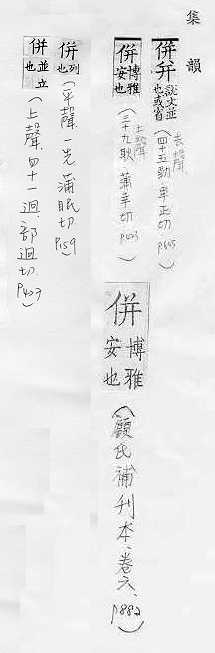 集韻
併并 說文並也或省 (去聲 四十五勁 卑正切 p605)
併 博雅安也 (上聲 三十九耿 蒲幸切)
併 博雅安也 (顧氏補刊本、卷六、p882)
併 列也 (平聲 一先 蒲眠切 p159)
併 並立也 (上聲 四十一迥 部迥切 p427)